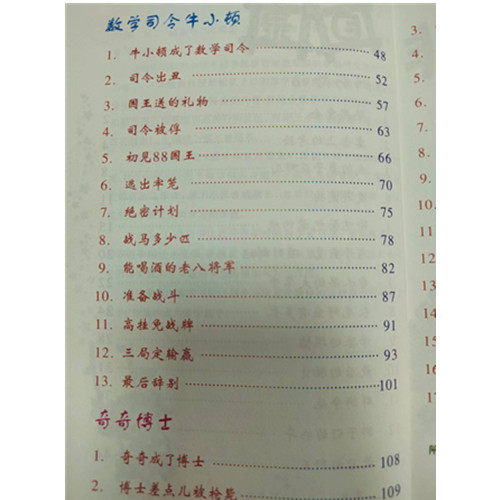 数学司令牛小顿
1. 牛小顿成了数学司令 48
2. 司令出丑 52
3. 国王送的礼物 57
4. 司令被俘 63
5. 初见88国王 66
6. 逃出牢笼 70
7. 绝密计划 75
8. 战马多少匹 78
9. 能喝酒的老八将军 82
10. 准备战斗 87
11. 高挂免战牌 91
12. 三局定输赢 93
13. 最后辞别 101
奇奇博士
1. 奇奇成了博士 108
2. 博士差点儿被枪毙 109